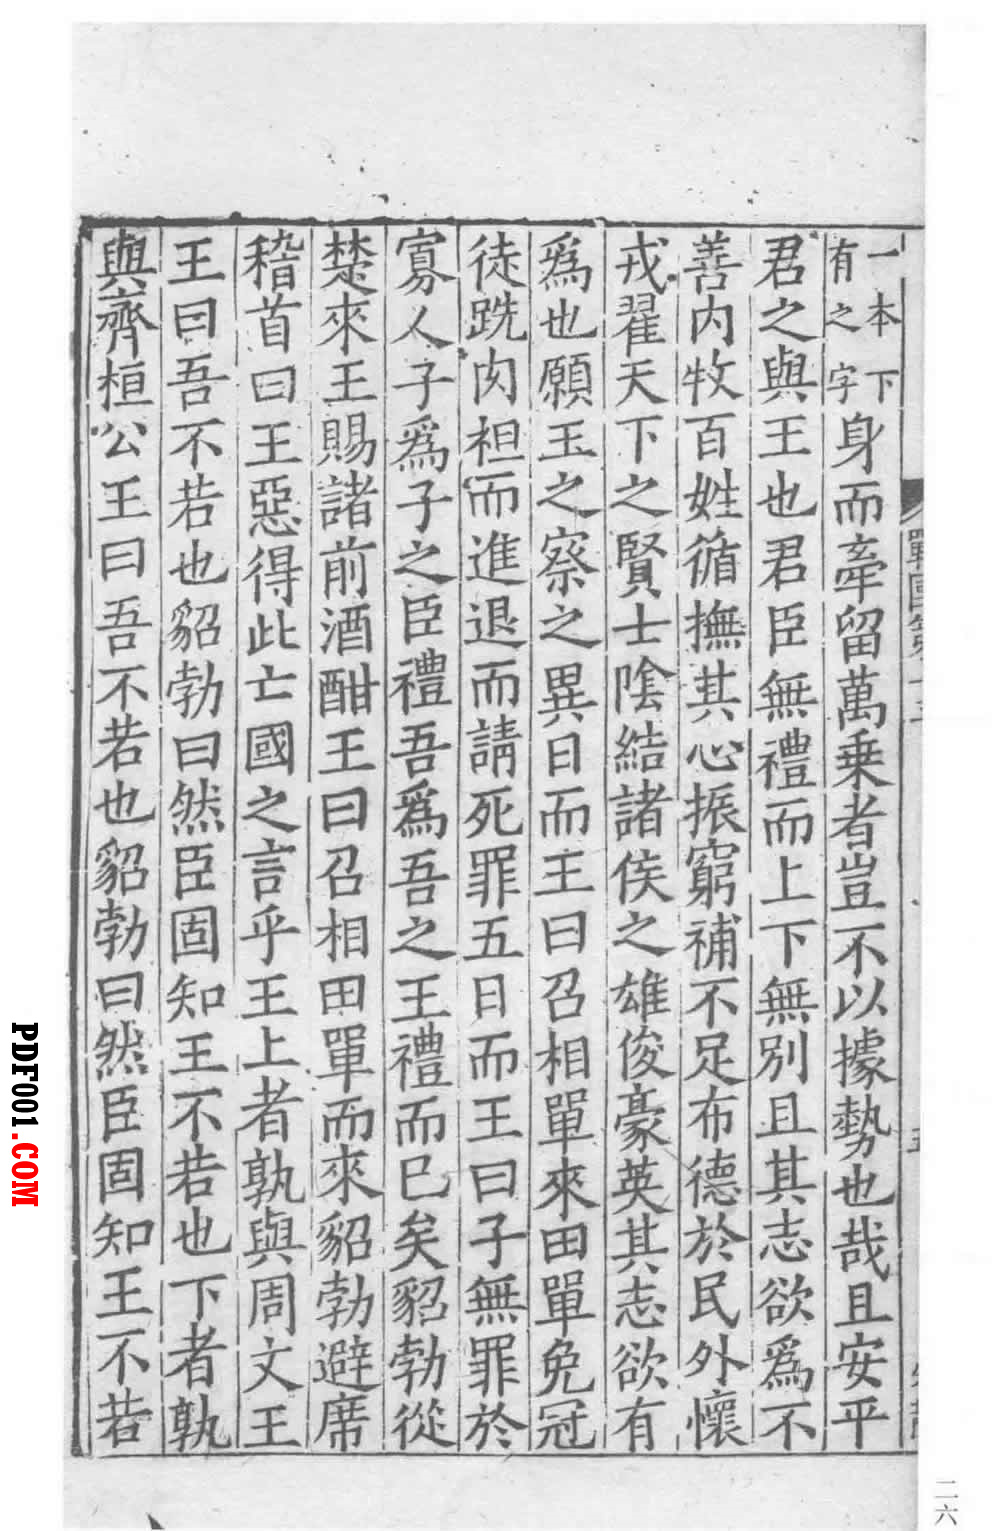 一本下有之字身而牽留萬乗者豈不以據勢也哉且安平
君之與王也君臣無禮而上下無別且其志欲爲不
善内牧百姓循撫其心振窮補不足布德於民外懷
戎翟天下之賢士隂結諸侯之雄俊豪英其志欲有
爲也願王之察之異日而王曰召相單來田單免冠
徒跣肉袒而進退而請死罪五日而王曰子無罪於
寡人子爲子之臣禮吾爲吾之王禮而巳矣貂勃從
楚來王賜諸前酒酣王曰召相田單而來貂勃避席
稽首曰王惡得此亡國之言乎王上者孰與周文王
王曰吾不若也貂勃曰然臣固知王不若也下者孰
與齊桓公王曰吾不若也貂勃曰然臣固知王不若
二六
PDF001.COM